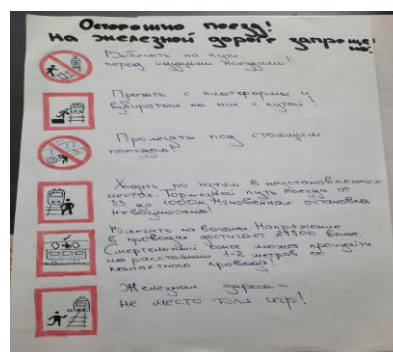 Осторожно поезд!
На железной дороге запреще
но!
Выбегать на пути
перед идущими поездами!
Прыгать с платформы и
взбираться на них с путей!
Пролезать под стоящим
поездом!
Ходить по путям в неустановленных
местах. Тормозной путь поезда от
33 до 1000м. Мгновенная остановка
невозможна!
Влезать на вагоны. Напряжение
в проводах достигает вольт.
Смертельный может произойти
на расстоянии 1-2 метров от
контактного провода!
Железная дорога-
не место для игр!